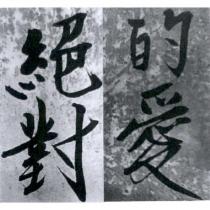 絕對
的愛